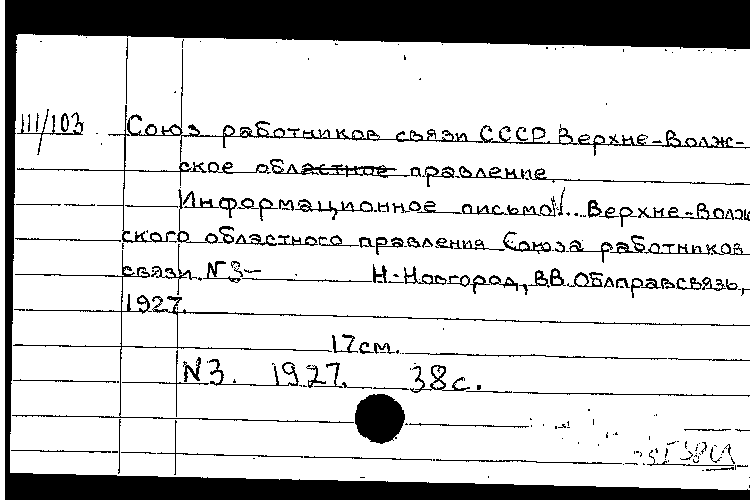 III/103 Союз работников связи СССР. Верхне-Волж-
ское областное правление
Информационное письмо... Верхне-Волж
ского областного правления Союза работников
связи. N3- Н-Новгород, В.В. Облправсвязь,
1927.
17см.
N3. 1927. 38с.